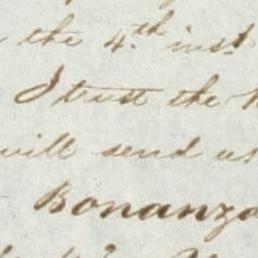 the 4.th inst
I trust the
will send us
Bonanza